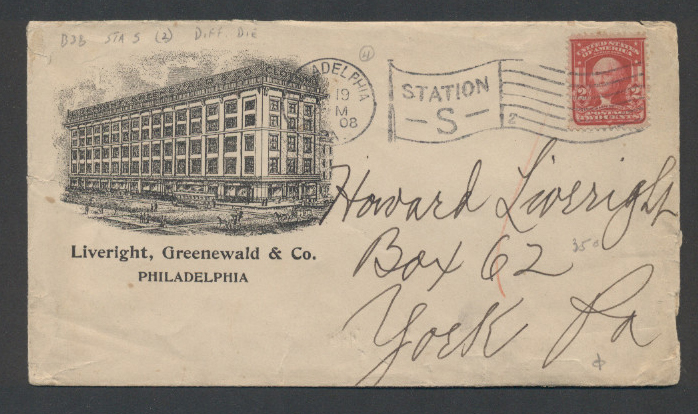 B23 STA S (2) DIFF. DIE
11
ADELPHIA
19
M
08
STATION
- S -
2
UNITED STATES
OF AMERICA
2 2
POSTAGE
TWO CENTS
Liveright, Greenewald & Co.
PHILADELPHIA
Howard Liveright
Box 62
350
York Pa